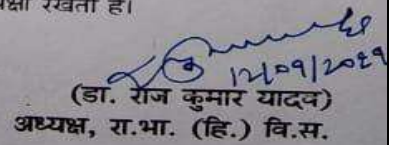 रखता है।
12/09/2019
(डा. राज कुमार यादव)
अध्यक्ष, रा.भा. (हि.) वि.स.